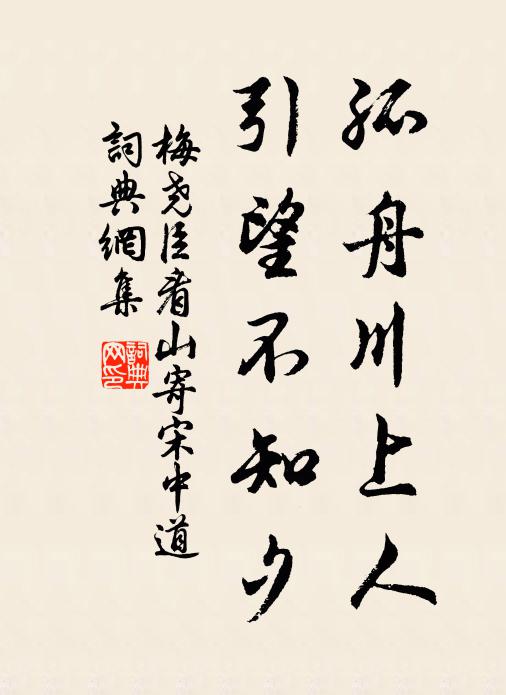 孤舟川上人
引望不知夕
梅尧臣看山寄宋中道
詞典網集
詞典网印